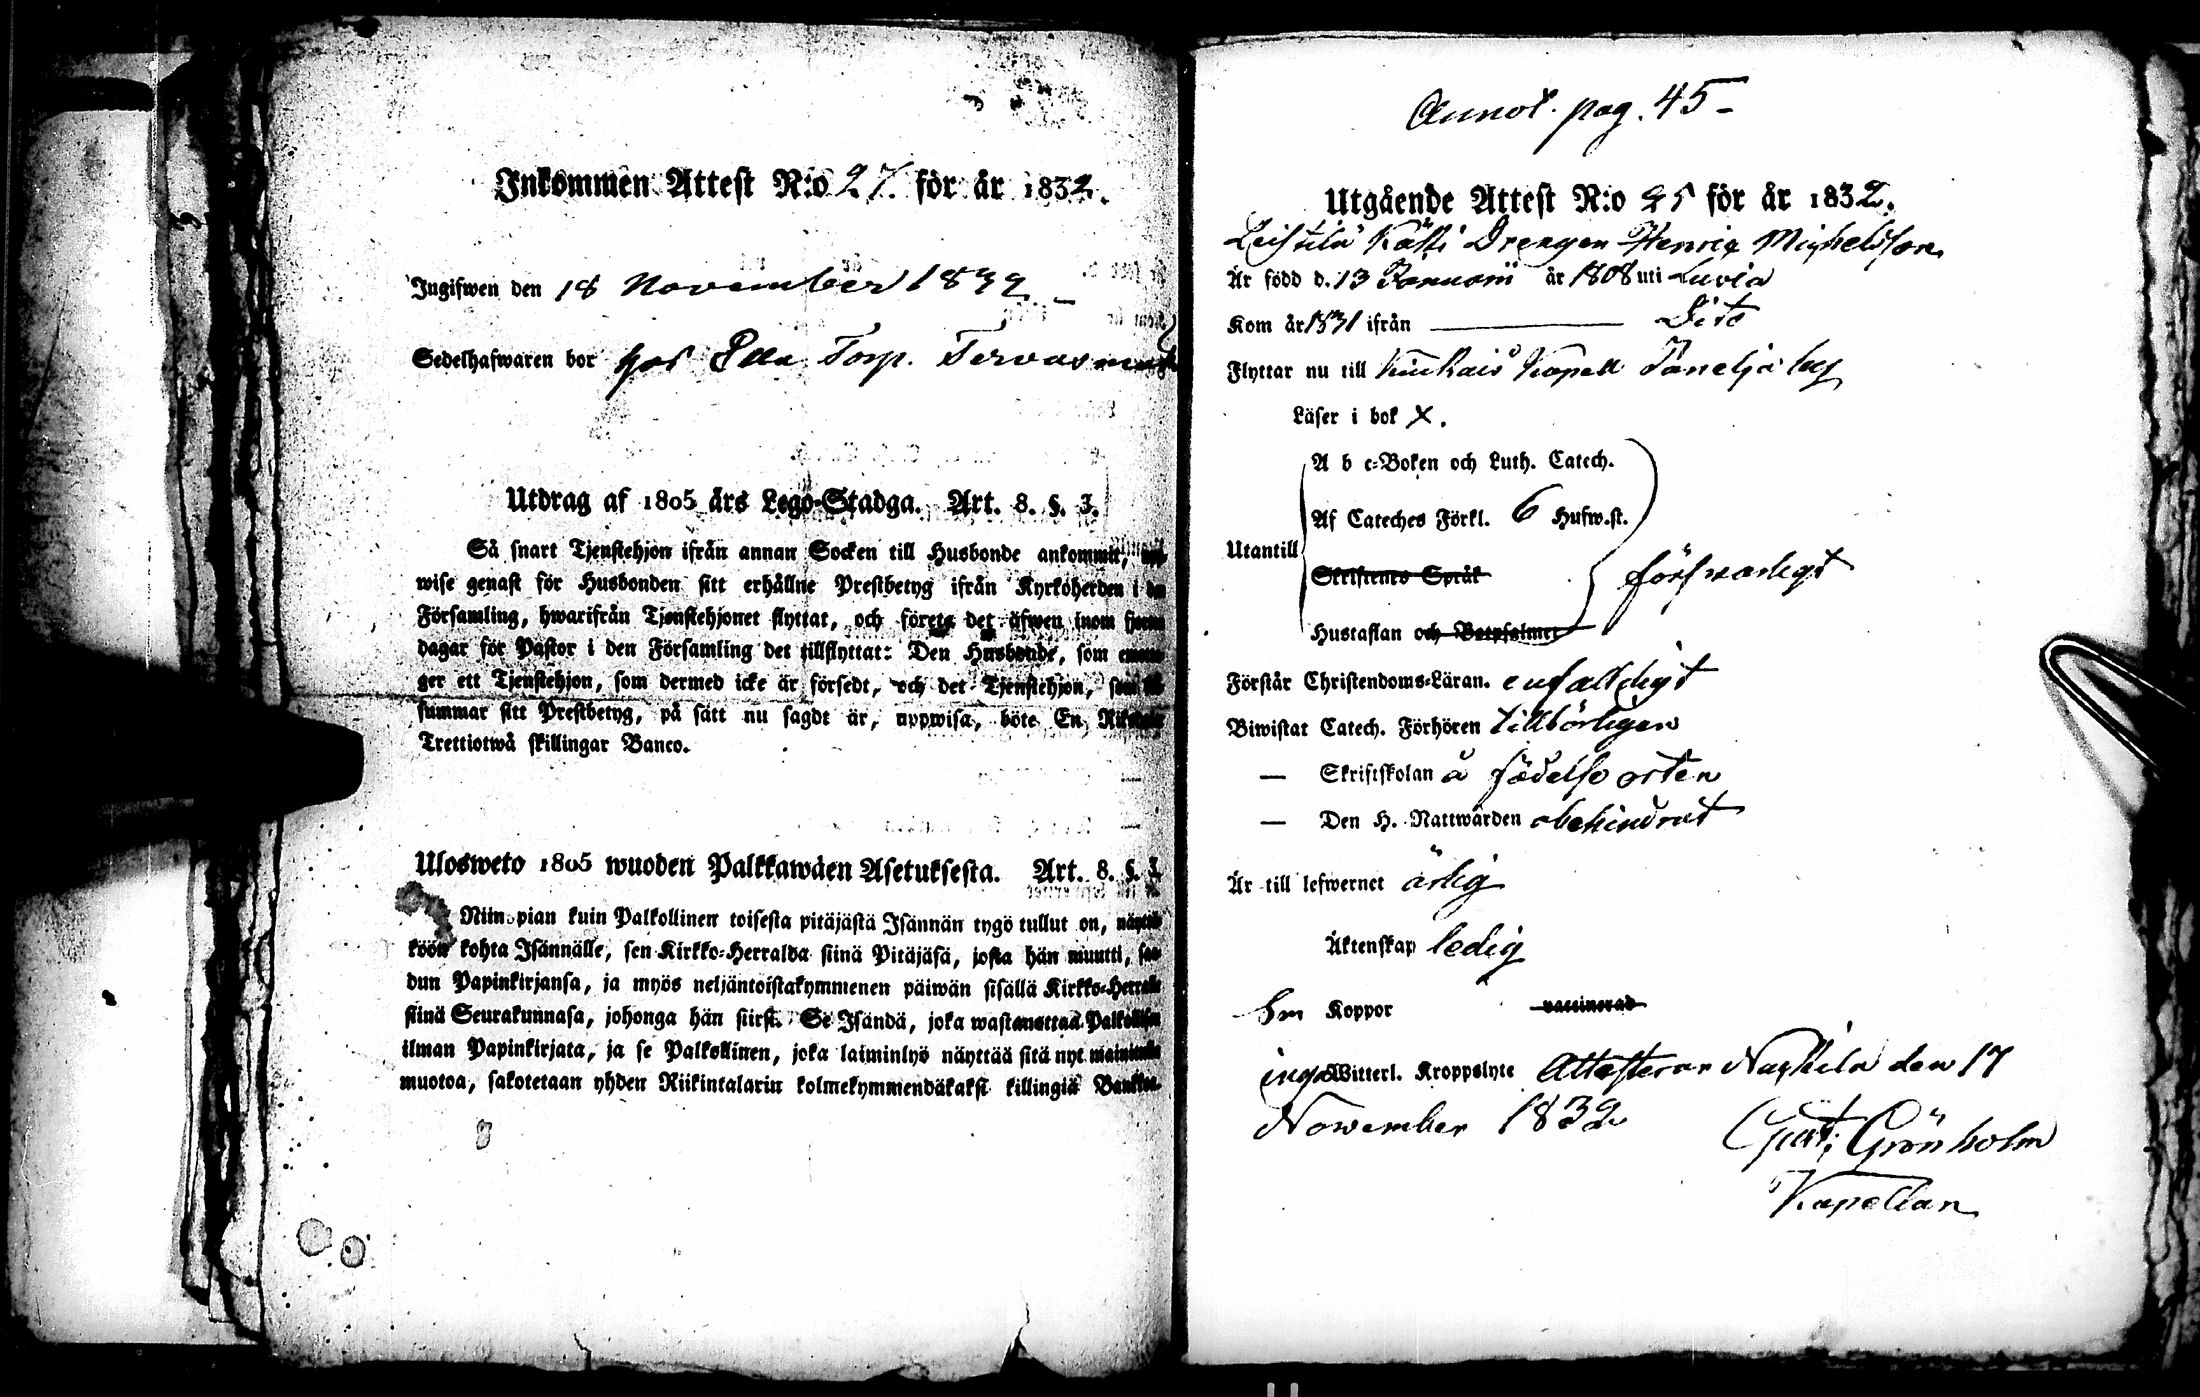 Inkommen Attest N:o 27. för år 1832.
Ingifwen den 18 November 1832
Sedelhafwaren bor hos Torp. Tervasmäki
Utdrag af 1805 års Lego-Stadga. Art. 8. §. 3.
Så snart Tjenstehjon ifrån annan Socken till Husbonde ankommit, upp-
wise genast för Husbonden sitt erhållne Prestbetyg ifrån Kyrkoherden i den
Församling, hwarifrån Tjenstehjonet flyttat, och förete det äfwen inom fjorton
dagar för Pastor i den Församling det tillflyttat: Den Husbonde, som emotta-
ger ett Tjenstehjon, som dermed icke är försedt, och det Tjenstehjon, som för-
summar sitt Prestbetyg, på sätt nu sagdt är, uppwisa, böte En Riksdaler
Trettiotwå skillingar Banco.
Ulosweto 1805 wuoden Palkkawäen Asetuksesta. Art. 8. §. 3.
Niin pian kuin Palkollinen toisesta pitäjästä Isännän tygö tullut on, näyttä-
köön kohta Isännälle, sen Kirkko-Herralda siinä Pitäjäsä, josta hän muutti, saa-
dun Papinkirjansa, ja myös neljäntoistakymmenen päiwän sisällä Kirkko-Herralle
siinä Seurakunnasa, johonga hän siirsi. Se Isändä, joka wastanottaa Palkollisen
ilman Papinkirjata, ja se Palkollinen, joka laiminlyö näyttää sitä nyt mainitulla
muotoa, sakotetaan yhden Riikintalarin kolmekymmendäkaksi killingiä Bankos-
Annot. pag. 45-
Utgående Attest N:o 25 för år 1832.
Leistilä Kätti Drengen Henrik Michelsson
Är född d. 13 Januarii år 1808 uti Luvia
Kom år 1831 ifrån Dito
Flyttar nu till Kiukais Kapell Paneljä by
Läser i bok X.
A b c-Boken och Luth. Catech.
Af Cateches Förkl. 6 Hufw.st.
Utantill
Skriftenes Språk
försvarligt
Hustaflan och Botpsalmer
Förstår Christendoms-Läran. enfaldigt
Biwistat Catech. Förhören tillbörligen
— Skriftskolan å födelse orten
— Den H. Nattwarden obehindrat
Är till lefwernet ärlig
Äktenskap ledig
Koppor vaccinerad
inga Witterl. Kroppslyte Attesterar Nakkila den 17
November 1832
Gust: Grönholm
Kapellan